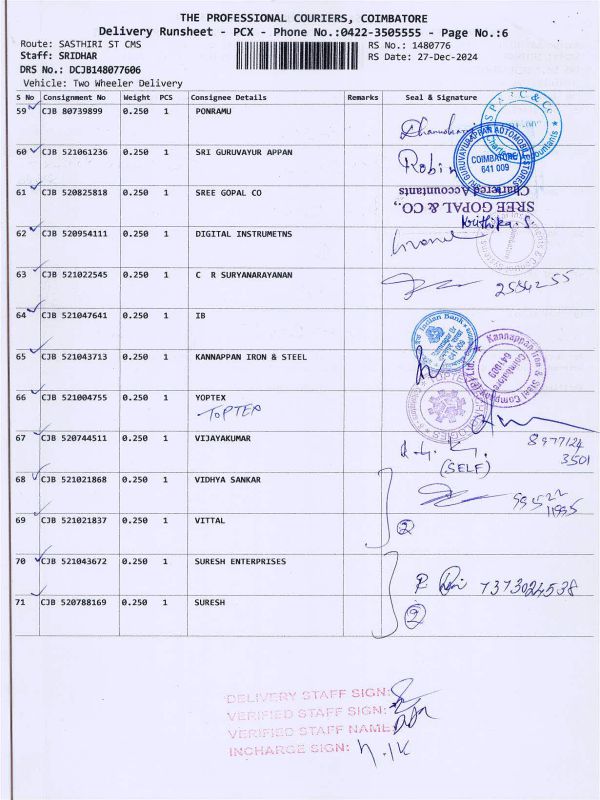 THE PROFESSIONAL COURIERS, COIMBATORE
Delivery Runsheet - PCX - Phone No.:0422-3505555 - Page No.:6
Route: SASTHIRI ST CMS RS No.: 1480776
Staff: SRIDHAR RS Date: 27-Dec-2024
DRS No.: DCJB148077606
Vehicle: Two Wheeler Delivery
S No Consignment No Weight PCS Consignee Details Remarks Seal & Signature
59 CJB 80739899 0.250 1 PONRAMU
60 CJB 521061236 0.250 1 SRI GURUVAYUR APPAN Robin
COIMBATORE
641 009
61 CJB 520825818 0.250 1 SREE GOPAL CO
Chartered Accountants
SREE GOPAL & CO.,
62 CJB 520954111 0.250 1 DIGITAL INSTRUMETNS
63 CJB 521022545 0.250 1 C R SURYANARAYANAN
64 CJB 521047641 0.250 1 IB
Indian Bank
65 CJB 521043713 0.250 1 KANNAPPAN IRON & STEEL
Kannappan Iron & Steel Company (P) Ltd.
Coimbatore
641009
66 CJB 521004755 0.250 1 YOPTEX
TOPTEX
67 CJB 520744511 0.250 1 VIJAYAKUMAR
8977124
3501
(SELF)
68 CJB 521021868 0.250 1 VIDHYA SANKAR
69 CJB 521021837 0.250 1 VITTAL
2
70 CJB 521043672 0.250 1 SURESH ENTERPRISES
7373024538
71 CJB 520788169 0.250 1 SURESH
2
DELIVERY STAFF SIGN:
VERIFIED STAFF SIGN:
VERIFIED STAFF NAME
INCHARGE SIGN: